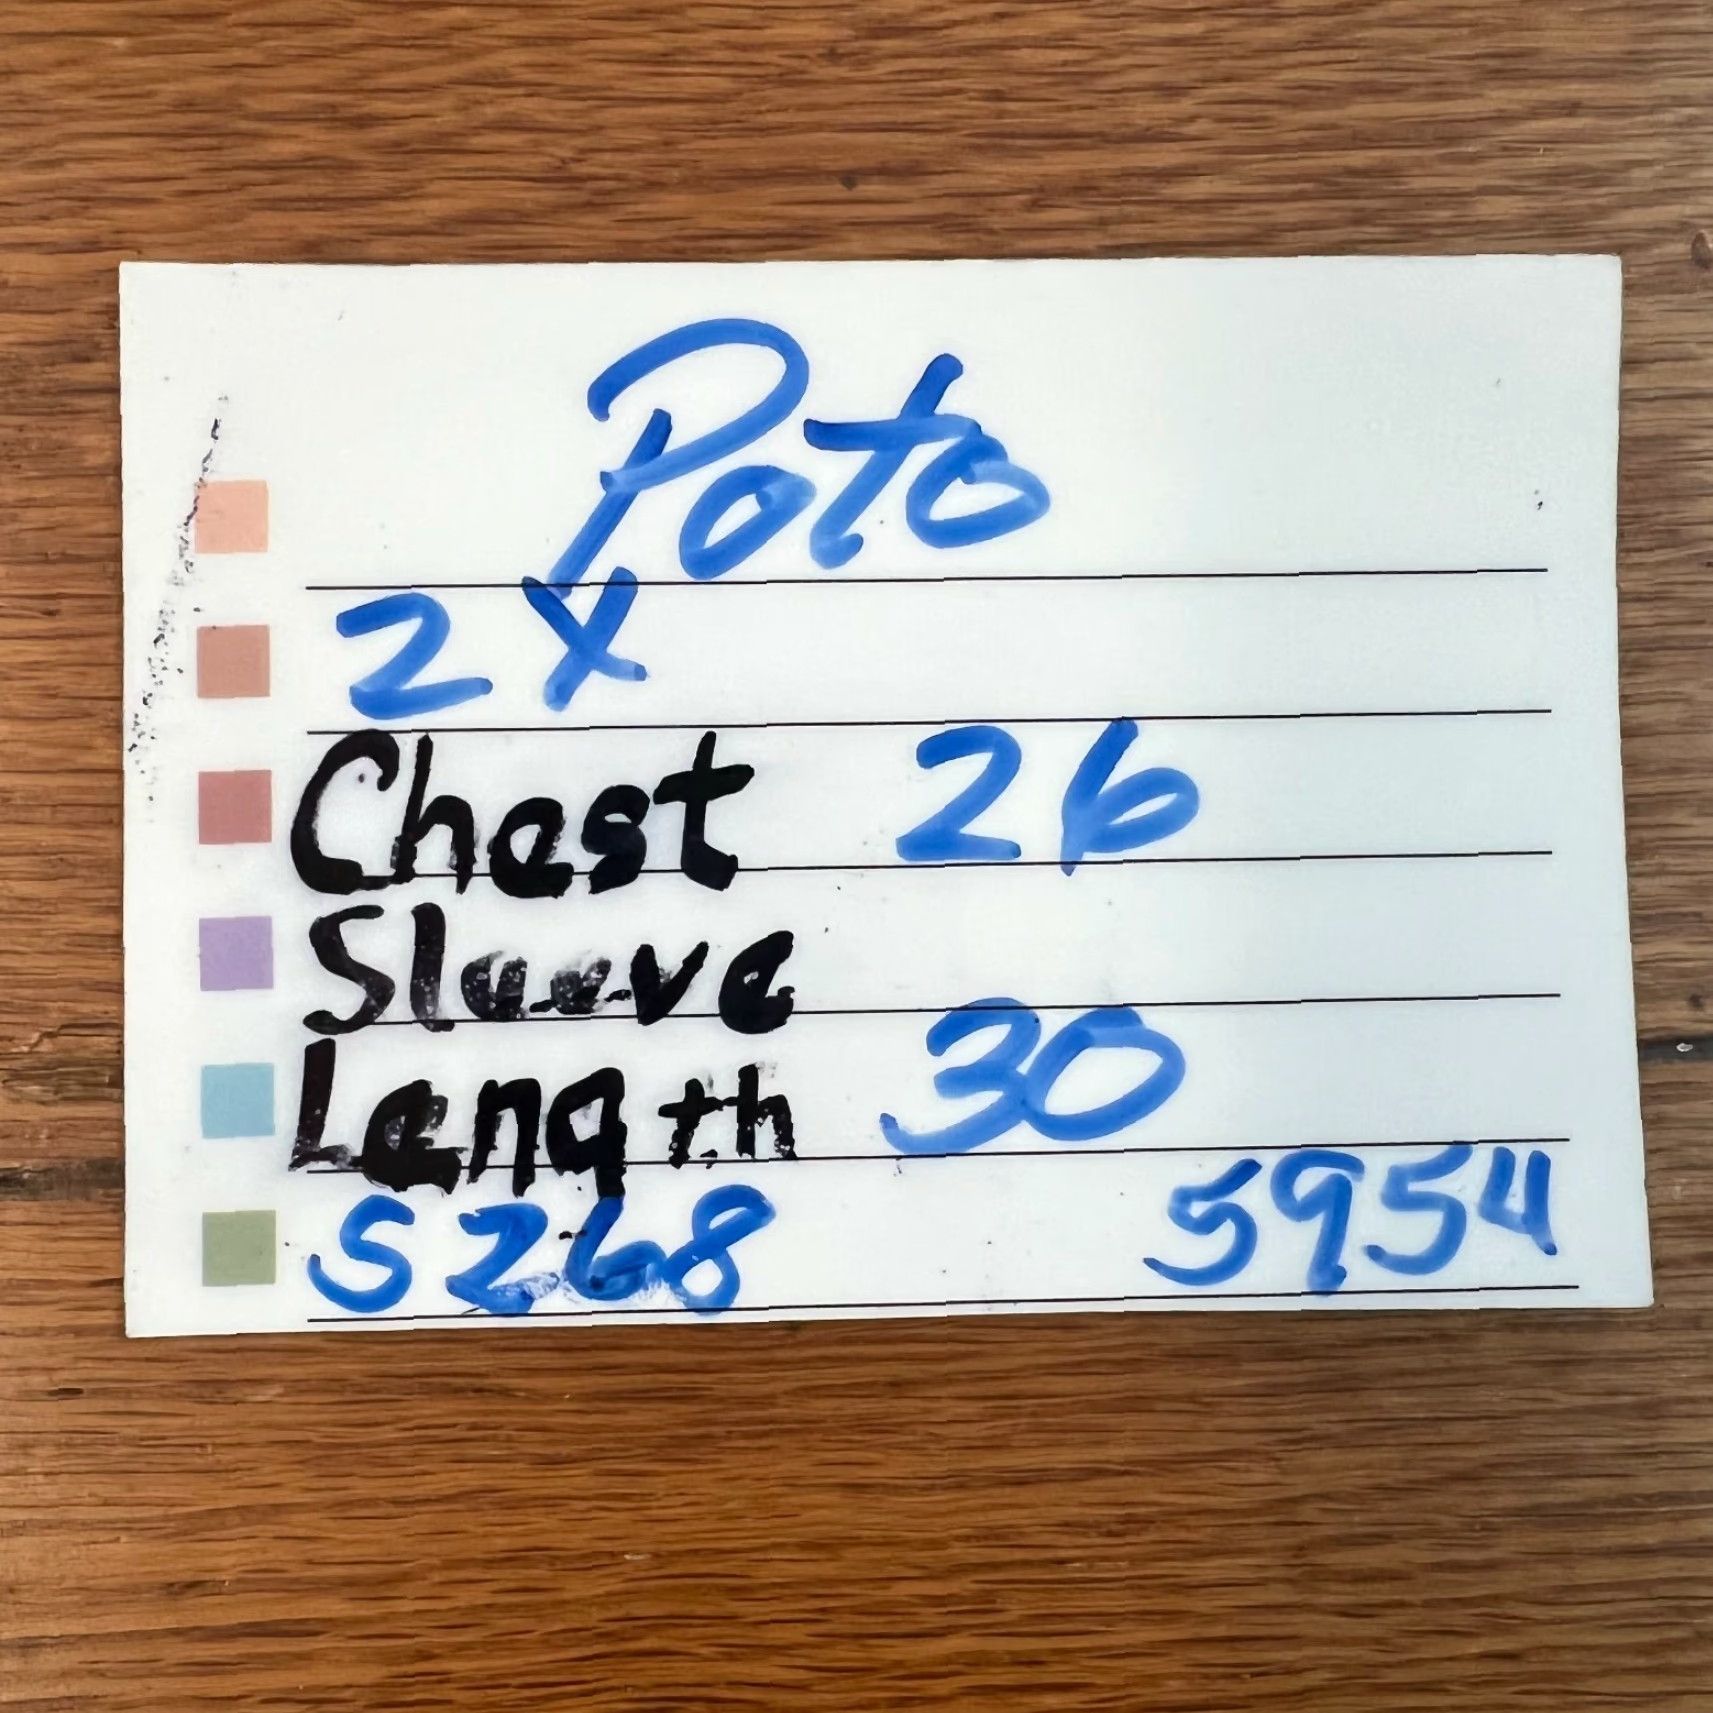 Poto
2X
Chest 26
Sleeve
Length 30
S268 5954